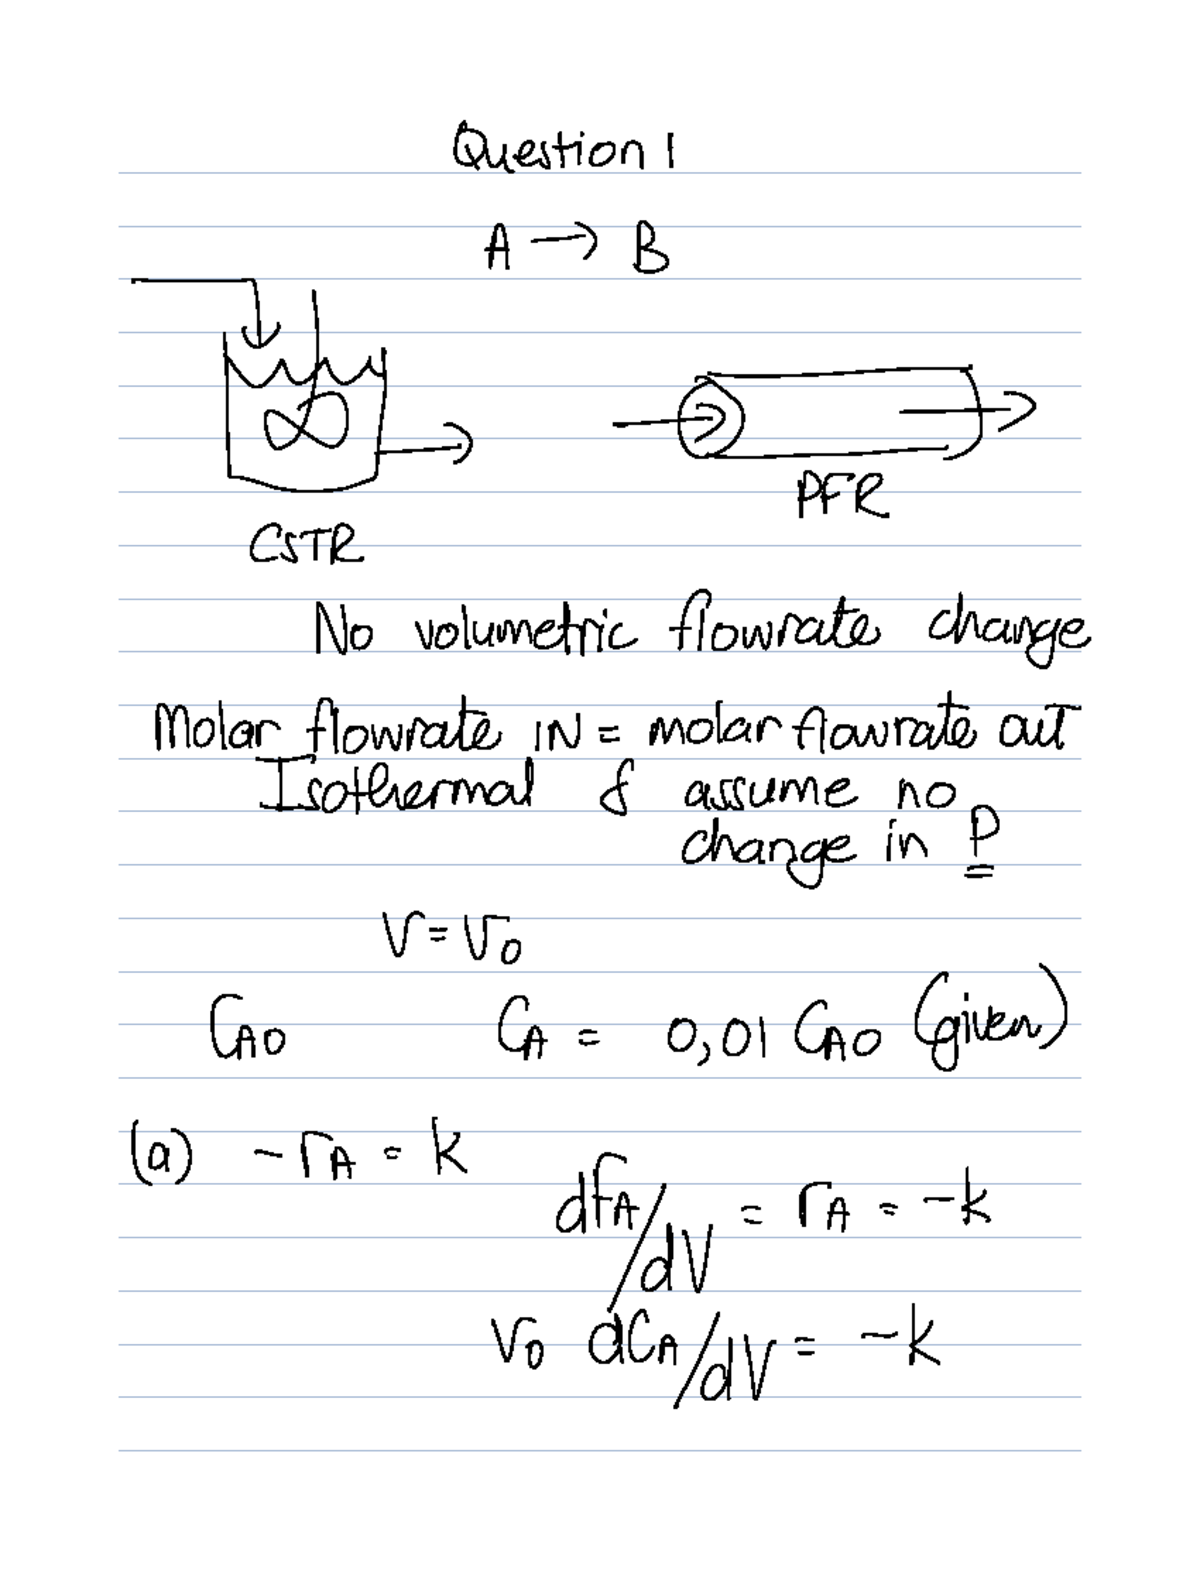 Question 1
A → B
CSTR
PFR
No volumetric flowrate change
Molar flowrate IN = molar flowrate out
Isothermal & assume no
change in P
v = v0
CA0 CA = 0,01 CA0 (given)
(a) -rA = k
dFA/dV = rA = -k
v0 dCA/dV = -k